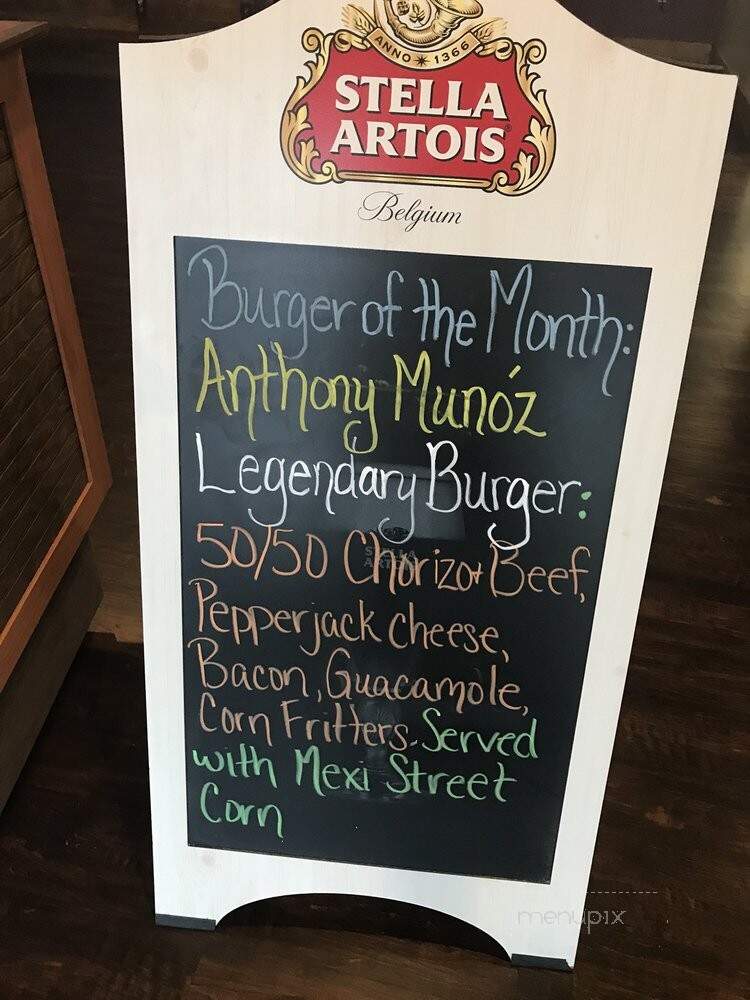 ANNO ✶ 1366
STELLA
ARTOIS®
Belgium
Burger of the Month:
Anthony Munóz
Legendary Burger:
50/50 Chorizo + Beef,
Pepperjack cheese,
Bacon, Guacamole,
Corn Fritters. Served
with Mexi Street
Corn
STELLA
ARTOIS
menupix